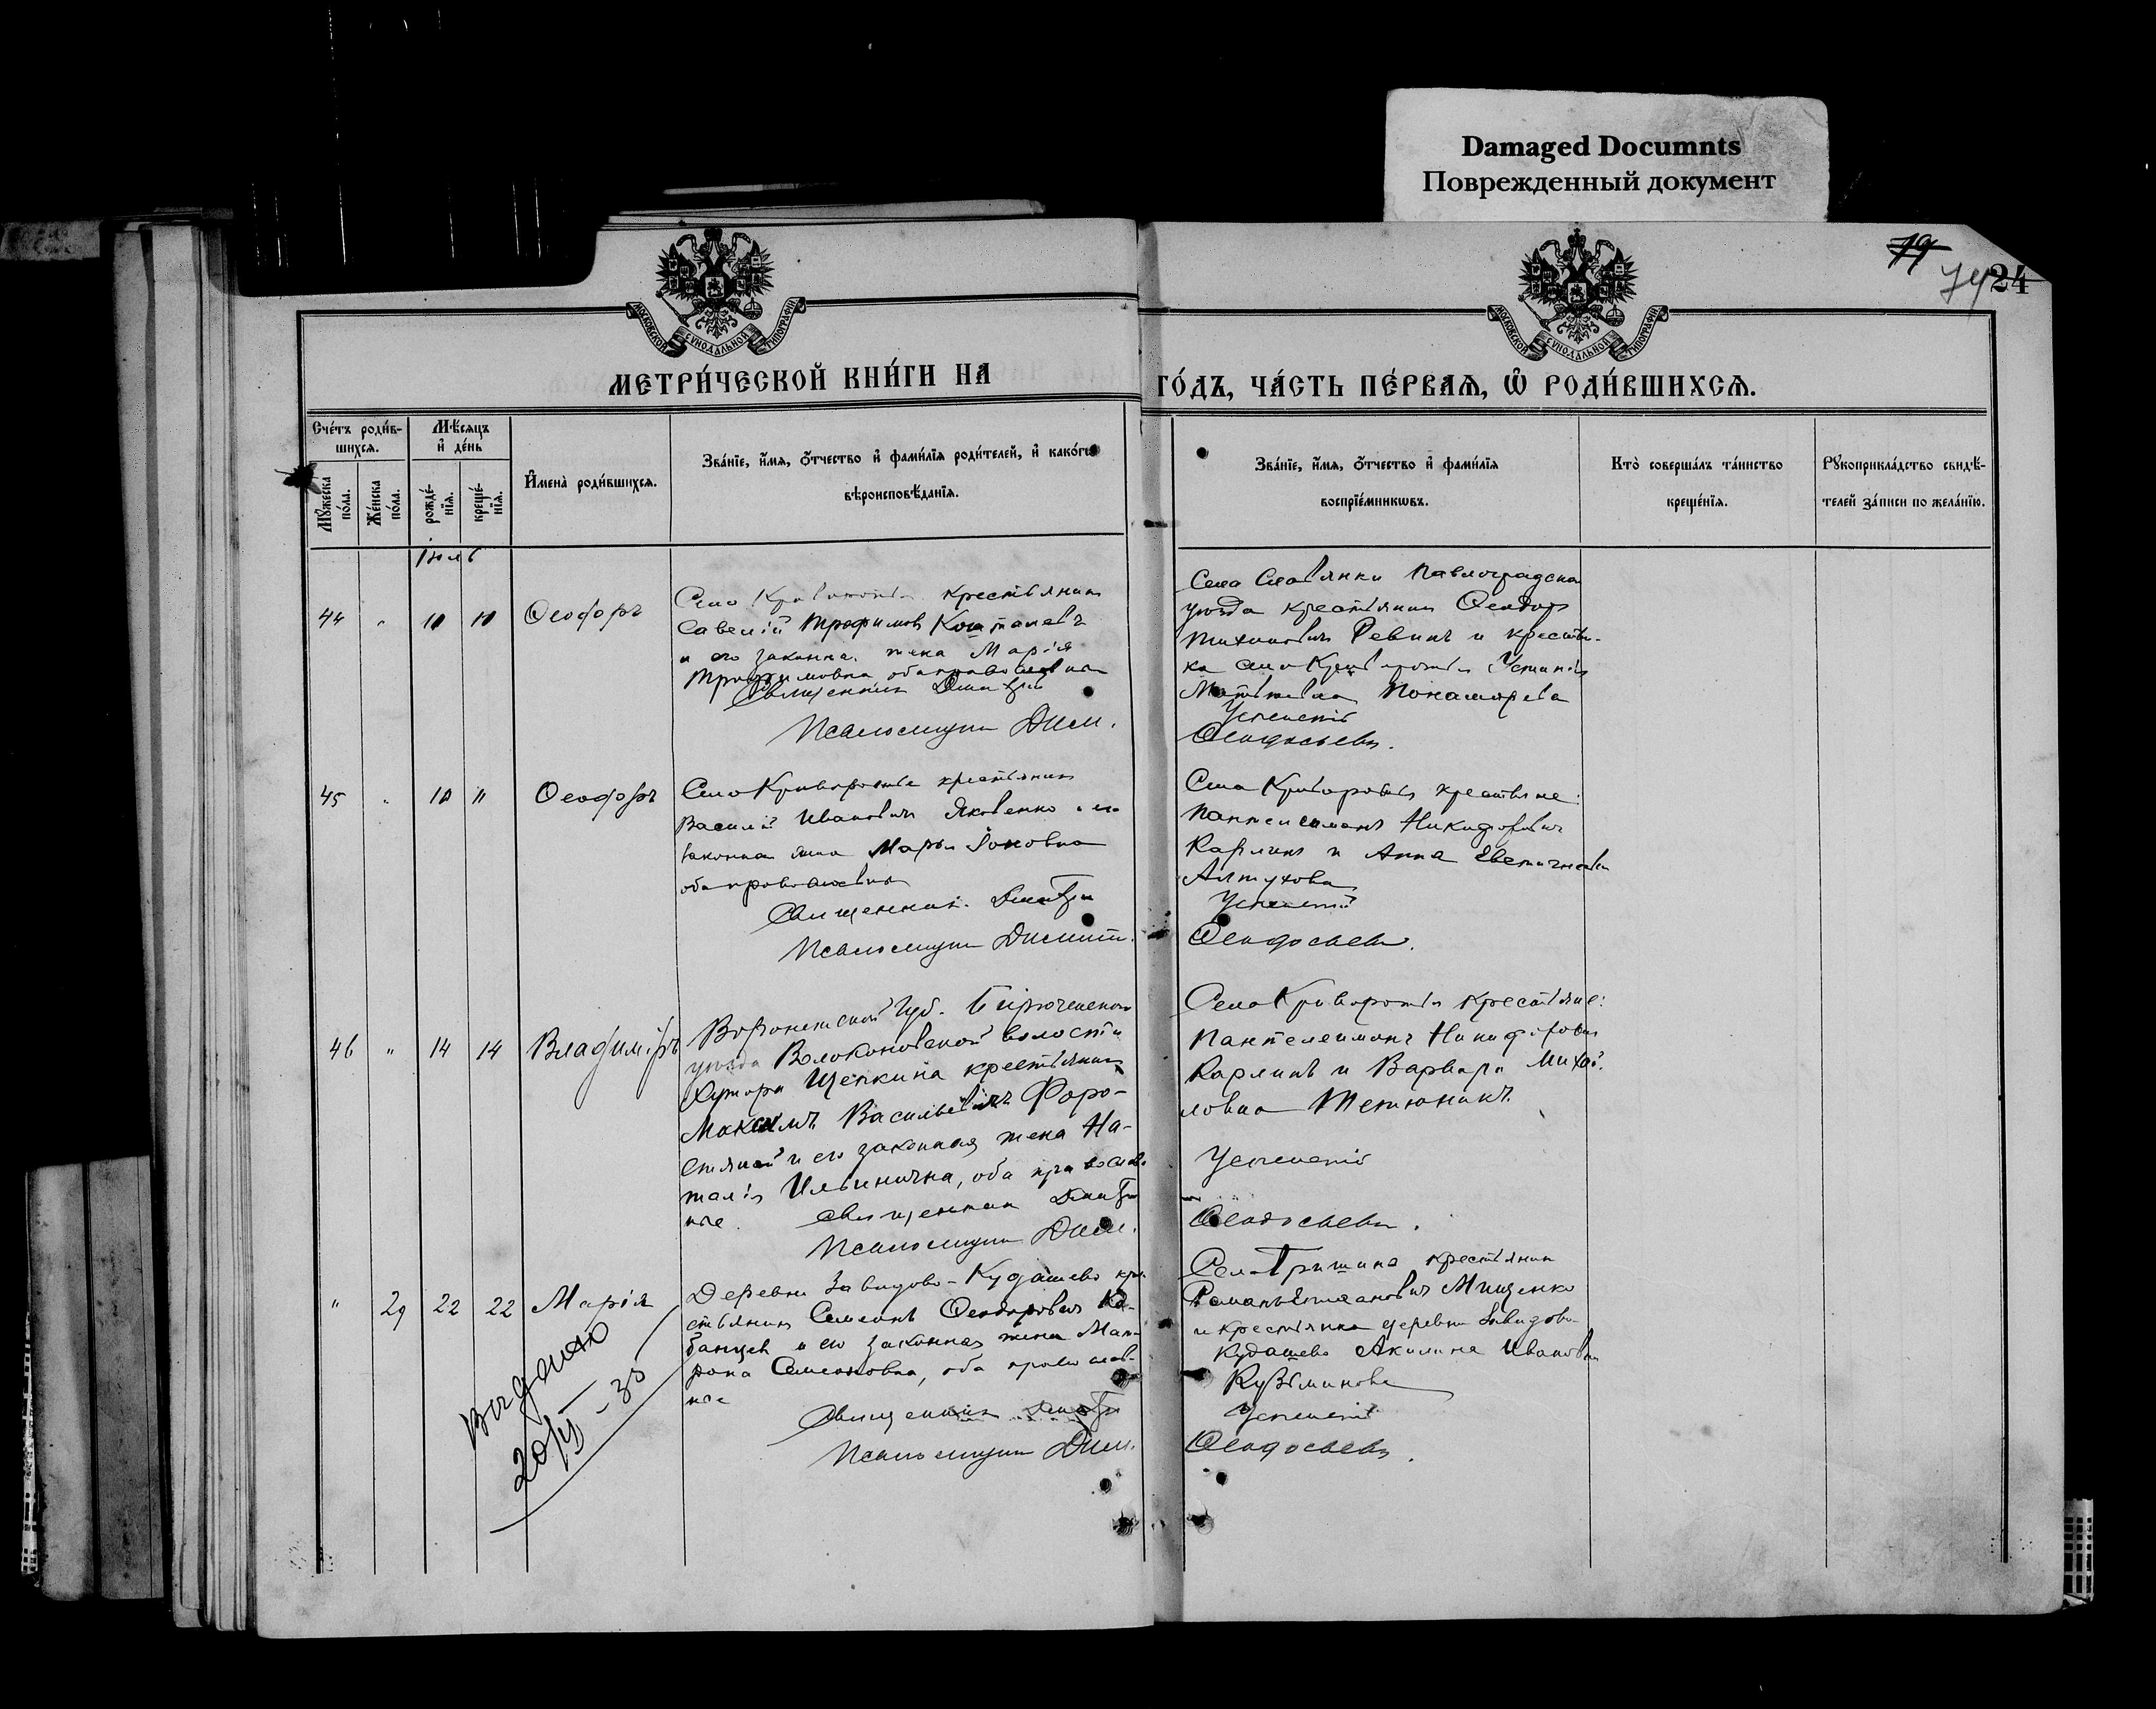 Damaged Documnts
Поврежденный документ
19
74 24
МОСКОВСКОЙ СУНОДАЛЬНОЙ ТИПОГРАФІИ
МОСКОВСКОЙ СУНОДАЛЬНОЙ ТИПОГРАФІИ
МЕТРИ́ЧЕСКОЙ КНИ́ГИ НА ГО́ДЪ, ЧА́СТЬ ПЕ́РВАѦ, Ѡ҆ РОДИ́ВШИХСѦ.
Сче́тъ роди́в-
шихсѧ.
Мꙋ́жеска
по́ла.
Же́нска
по́ла.
Мѣ́сѧцъ
и҆ де́нь
рожде́-
нїѧ.
креще́-
нїѧ.
И҆мена̀ роди́вшихсѧ.
Зва́нїе, и҆́мѧ, ѻ҆́тчество и҆ фами́лїѧ роди́телей, и҆ како́гѡ
вѣроисповѣ́данїѧ.
Зва́нїе, и҆́мѧ, ѻ҆́тчество и҆ фами́лїѧ
воспрїе́мникѡвъ.
Кто̀ соверша́лъ та́инство
креще́нїѧ.
Рꙋкоприкла́дство свидѣ́-
телей за́писи по жела́нїю.
Іюль
44 " 10 10 Ѳеодоръ
крестьянин
Савелій Трофимов
и его законна. жена Марія
Священникъ Дмитрій
Псаломщик Дим.
Села Славянки Павлоградска
уѣзда крестьянин Ѳеодор
Тихонович Ревинъ и крестьян-
ка село
Пономарева
Успенскій
Ѳеодосьевъ.
45 " 10 " Ѳеодоръ
Село Криворожье крестьянин
Василій Иванович Яковенко и его
законна жена Марья Іоновна
оба православны
Священник. Дмитрій
Псаломщик Димит.
Села Криворожья крестьяне:
Пантелеимонъ Никифорович
Карлинъ и Анна
Алтухова
Успенскій
Ѳеодосьевъ.
46 " 14 14 Владиміръ
Воронежской губ. Бирюченскаго
уѣзда Волоконовской волости
Хутора Щепкина крестьянинъ
Максимъ Васильевичъ Форо-
стяной и его законная жена На-
талія Ильинична, оба православ-
ные. Священник Дмитрій
Псаломщик Дим.
Села Криворожья крестьяне:
Пантелеимонъ Никифорович
Карлинъ и Варвара Михай-
ловна
Успенскій
Ѳеодосьевъ.
" 29 22 22 Марія
Деревни Завидово-Кудашево кре-
стьянин Симеонъ Ѳеодорович Ка-
банцев и его законная жена Мат-
рона Симеоновна, оба православ-
ные
Священник Дмитрій
Псаломщик Дим.
Села Гришина крестьянин
Романъ Мищенко
и крестьянка деревни Завидово-
Кудашево Акилина Ивановна
Кузьминова
Успенскій
Ѳеодосьевъ.
Выдано